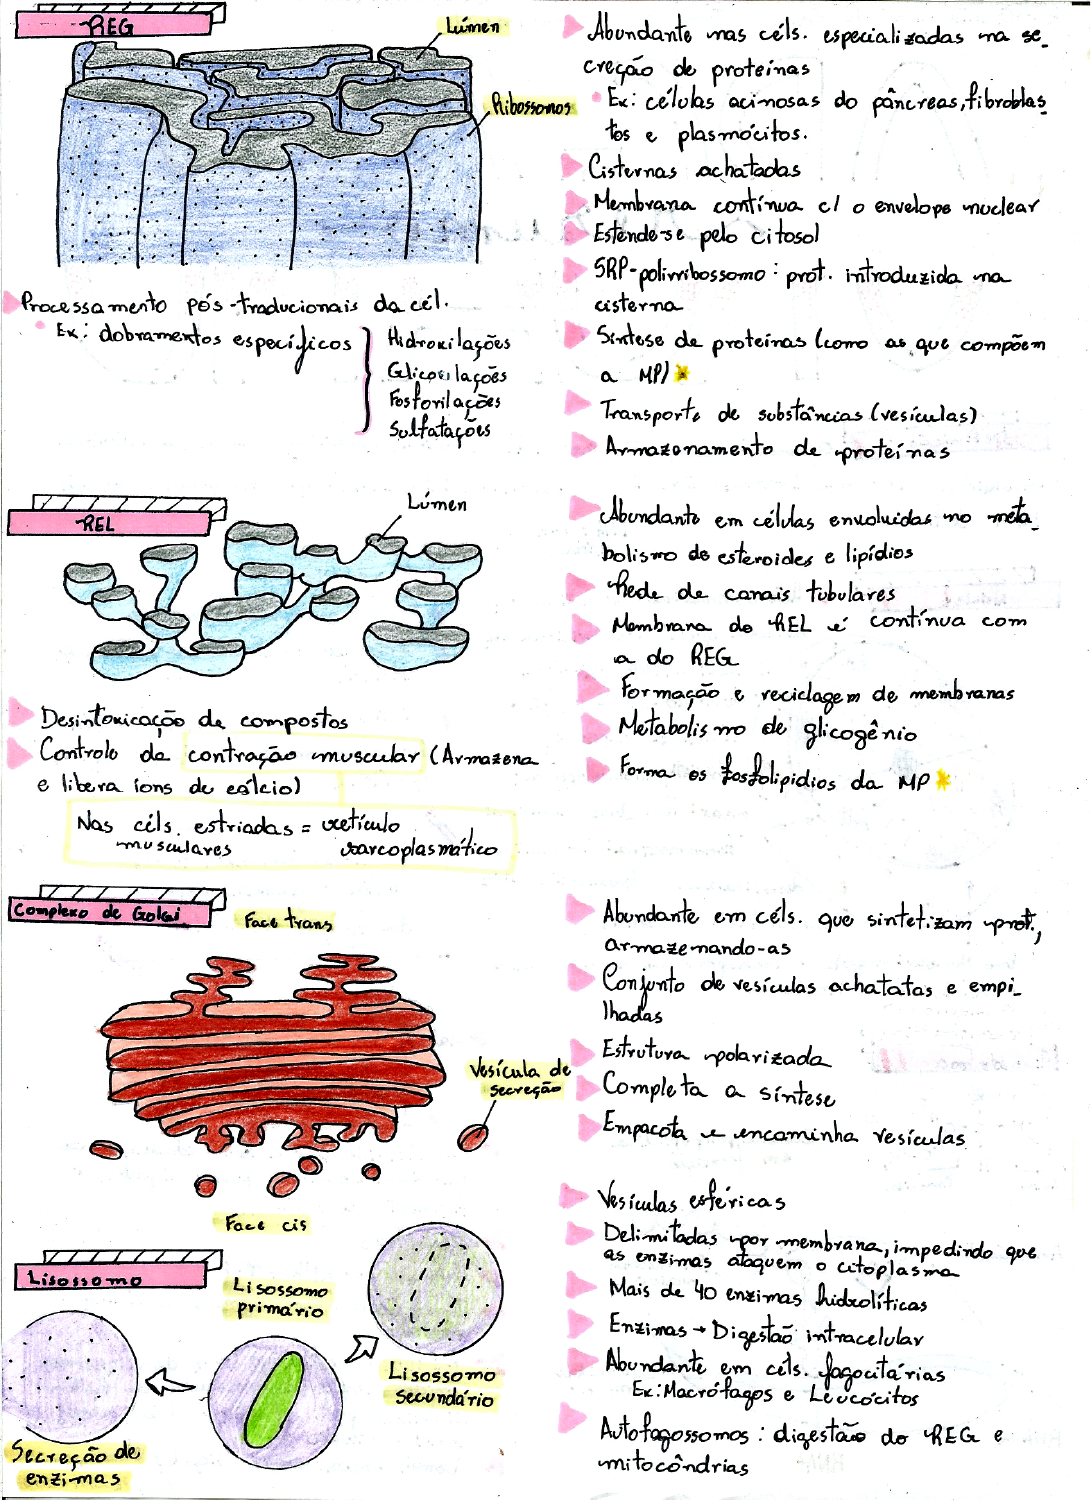 REG
Lúmen
Ribossomos
Abundante nas céls. especializadas na se_
creção de proteínas
Ex: células acinosas do pâncreas, fibroblas
tos e plasmócitos.
Cisternas achatadas
Membrana contínua c/ o envelope nuclear
Estende-se pelo citosol
SRP-polirribossomo: prot. introduzida na
cisterna
Síntese de proteínas (como as que compõem
a MP)
Transporte de substâncias (vesículas)
Armazenamento de proteínas
Processamento pós-traducionais da cél.
Ex: dobramentos específicos
Hidroxilações
Glicosilações
Fosforilações
Sulfatações
REL
Lúmen
Abundante em células envolvidas no meta_
bolismo de esteroides e lipídios
Rede de canais tubulares
Membrana do REL é contínua com
a do REG
Formação e reciclagem de membranas
Metabolismo de glicogênio
Forma os fosfolipídios da MP
Desintoxicação de compostos
Controle da contração muscular (Armazena
e libera íons de cálcio)
Nas céls. estriadas = retículo
musculares sarcoplasmático
Complexo de Golgi
Face trans
Vesícula de
secreção
Face cis
Abundante em céls. que sintetizam prot.,
armazenando-as
Conjunto de vesículas achatatas e empi_
lhadas
Estrutura polarizada
Completa a síntese
Empacota e encaminha vesículas
Lisossomo
Lisossomo
primário
Lisossomo
secundário
Secreção de
enzimas
Vesículas esféricas
Delimitadas por membrana, impedindo que
as enzimas ataquem o citoplasma
Mais de 40 enzimas hidrolíticas
Enzimas → Digestão intracelular
Abundante em céls. fagocitárias
Ex: Macrófagos e Leucócitos
Autofagossomos: digestão do REG e
mitocôndrias